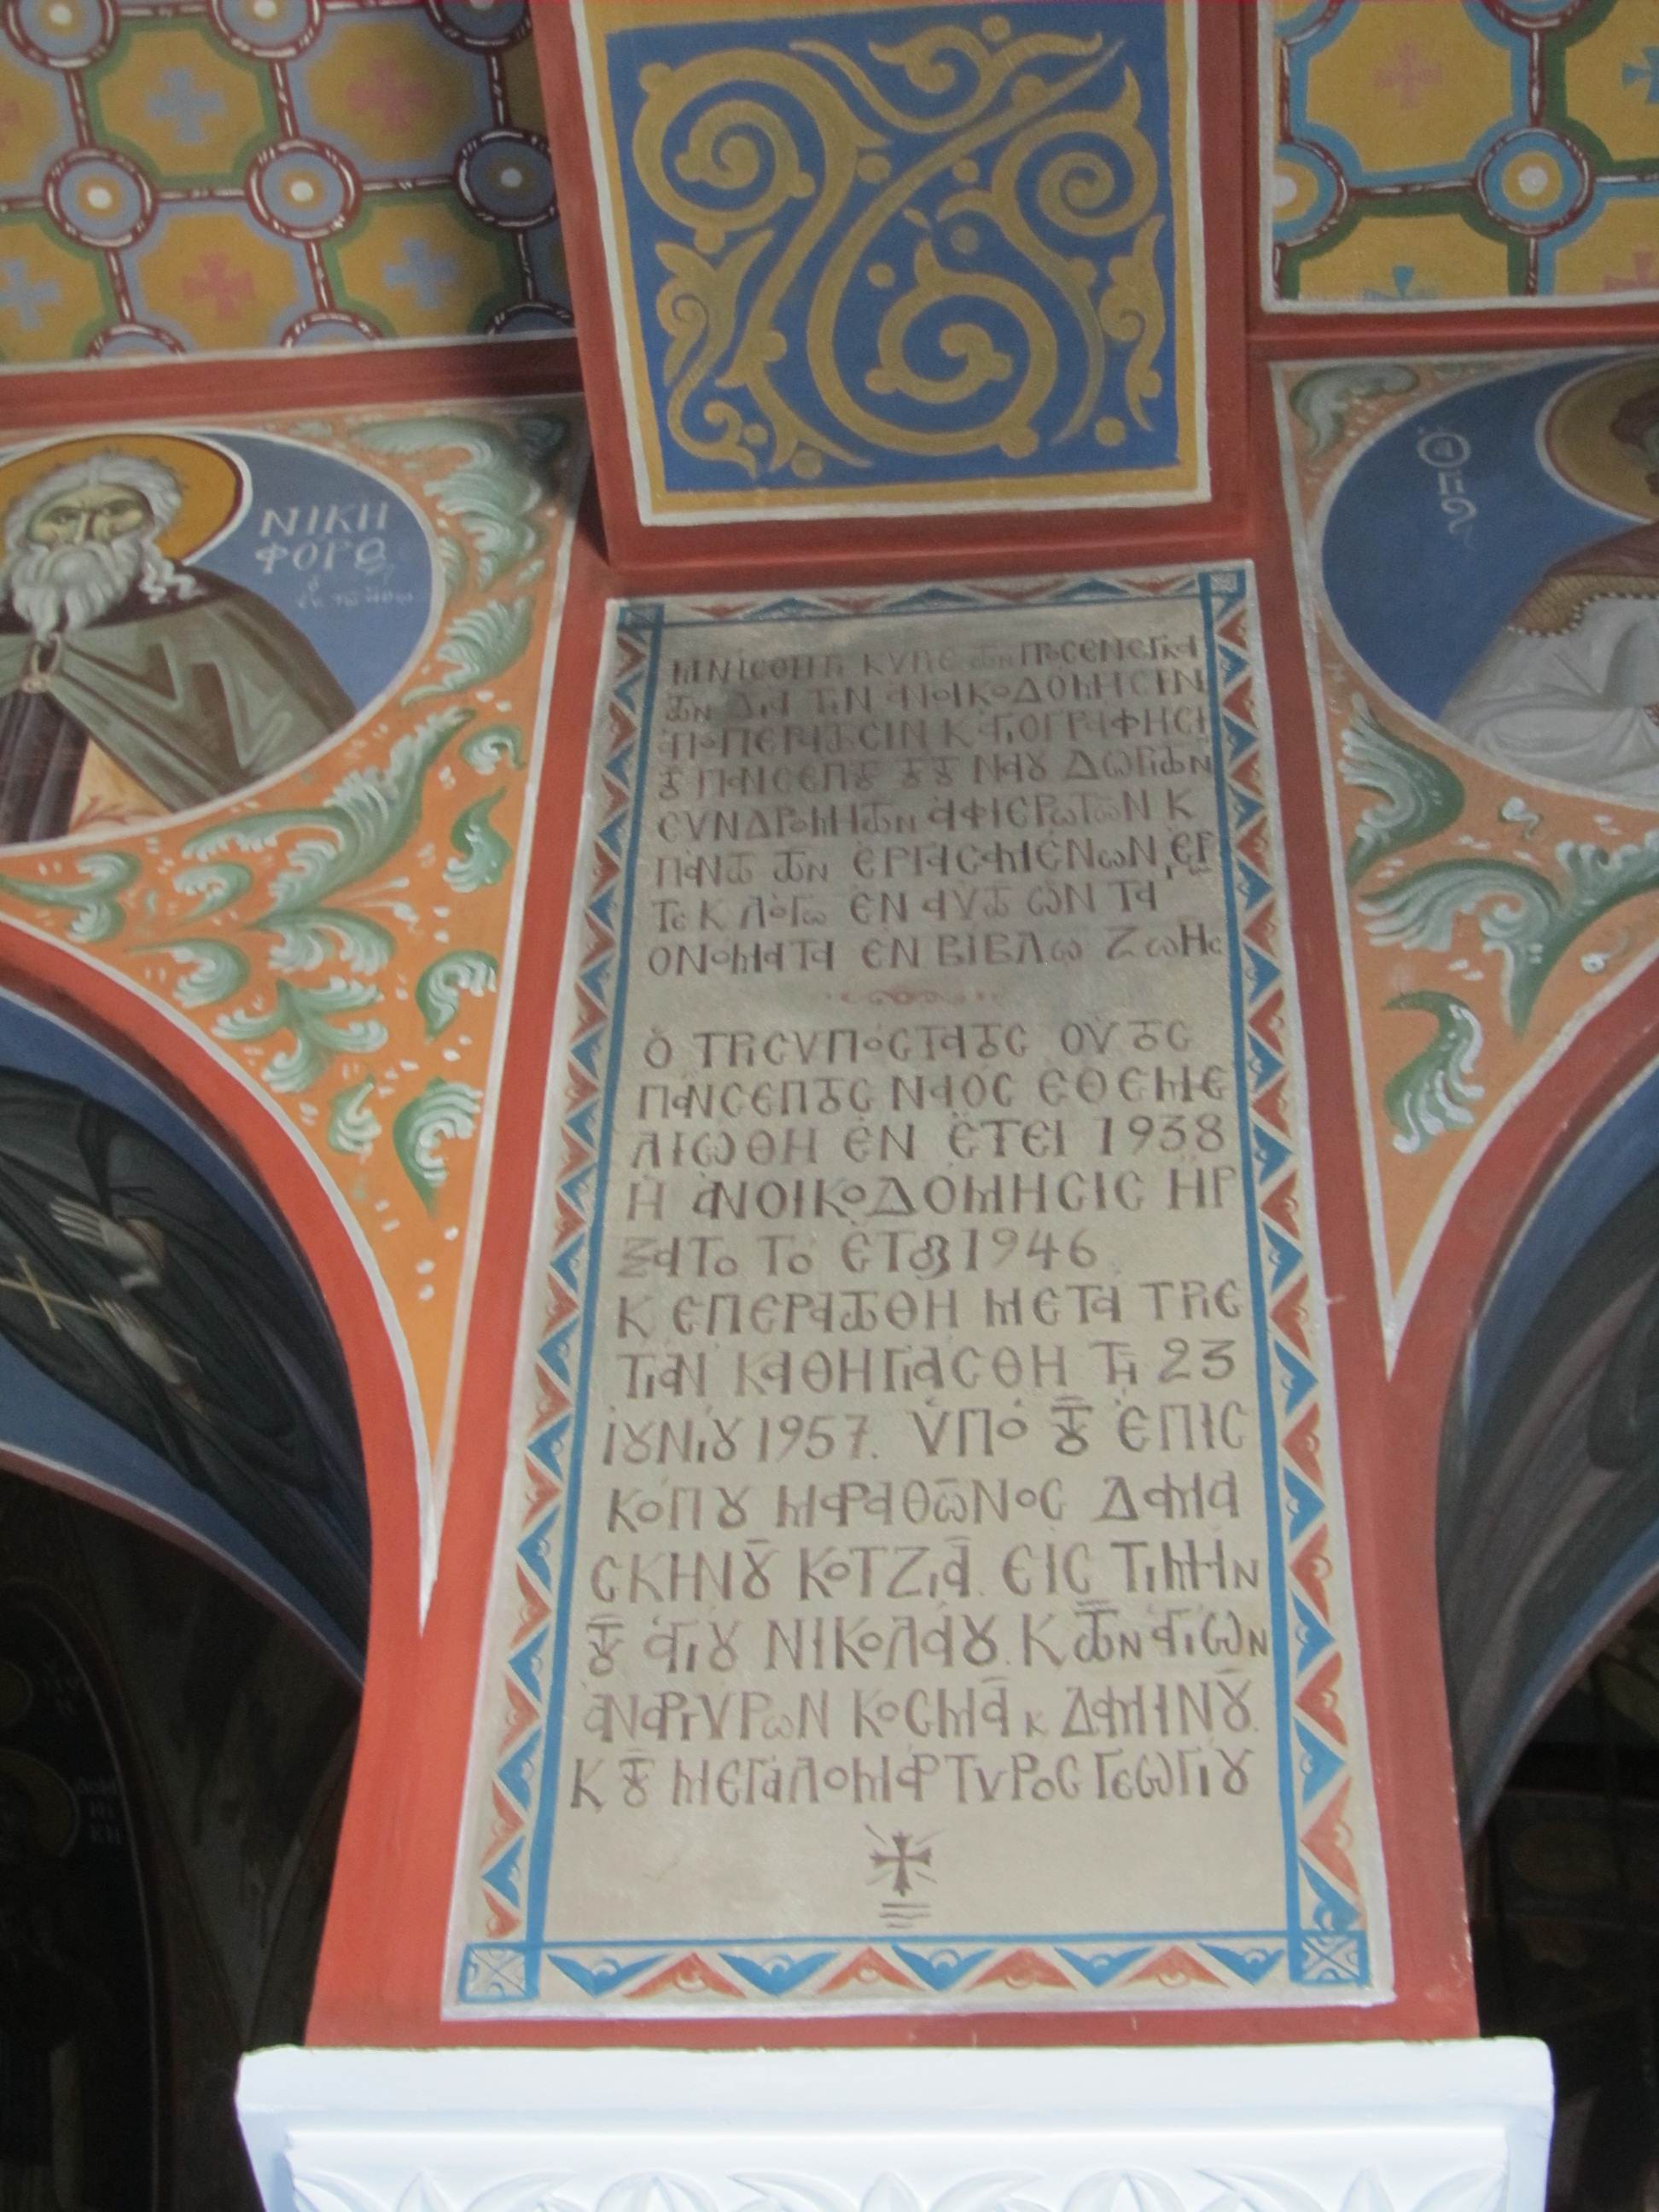 ΝΙΚΗ
ΦΟΡΟς
ΜΝΙCΘΗΤΙ ΚΥΡΙΕ ΤῶΝ ΠΡΟCΕΝΕΓΚΑ
ΤΩΝ ΔΙΑ ΤΙΝ ΑΝΟΙΚΟΔΟΜΗCΙΝ
ΑΠΟΠΕΡΑΤΩCΙΝ Κ ΑΓΙΟΓΡΑΦΗCΙ
ΤȢ ΠΑΝCΕΠΤȢ ΤȢΤȢ ΝΑȢ ΔΩΡΙΤΩΝ
CΥΝΔΡΟΜΗΤΩΝ ΑΦΙΕΡΩΤΩΝ Κ
ΠΑΝΤΩ ΤΩΝ ΕΡΓΑCΑΜΕΝΩΝ ΕΡ
ΤΕ Κ ΛΟΓΩ ΕΝ ΑΥΤΩ ΩΝ ΤΑ
ΟΝΟΜΑΤΑ ΕΝ ΒΙΒΛΩ ΖΩΗC
Ὁ ΤΡΙCΥΠΟCΤΑΤΟC ΟΥΤΟC
ΠΑΝCΕΠΤΟC ΝΑΟC ΕΘΕΜΕ
ΛΙΩΘΗ ΕΝ ΕΤΕΙ 1938
Η ΑΝΟΙΚΟΔΟΜΗCΙC ΗΡ
ΞΑΤΟ ΤΟ ΕΤΟς 1946
Κ ΕΠΕΡΑΤΩΘΗ ΜΕΤΑ ΤΡΙΕ
ΤΙΑΝ ΚΑΘΗΓΙΑCΘΗ ΤΗ 23
ΙȢΝΙȢ 1957. ΥΠΟ ΤȢ ΕΠΙC
ΚΟΠȢ ΜΑΡΑΘΩΝΟC ΔΑΜΑ
CΚΗΝȢ ΚΟΤΖΙΑ. ΕΙC ΤΙΜΗΝ
ΤȢ ΑΓΙȢ ΝΙΚΟΛΑȢ. Κ ΤΩΝ ΑΓΙΩΝ
ΑΝΑΡΓΥΡΩΝ ΚΟCΜΑ Κ ΔΑΜΙΝȢ.
Κ ΤȢ ΜΕΓΑΛΟΜΑΡΤΥΡΟC ΓΕΩΓΙȢ